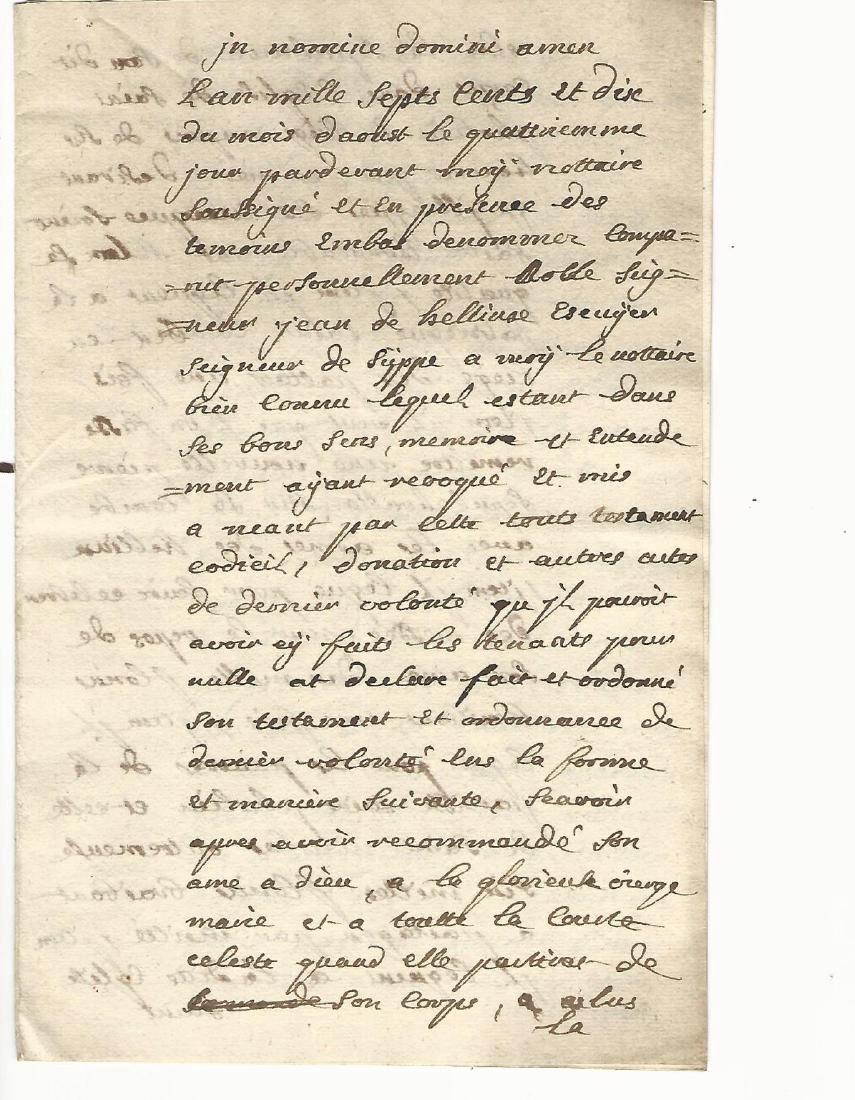 jn nomine domini amen
L an mille septs cents et dix
du mois daoust le quattriemme
jour pardevant moÿ nottaire
soussigné et en presence des
temoins embas denommer compa=
=rut personnellement noble sig=
=neur jean de hellinse escuÿer
seigneur de sÿppe a moÿ le nottaire
bien connu lequel estant dans
ses bons sens, memoire et entende
=ment aÿant revoqué et mis
a neant par cette touts testament
codicil, donation et autres actes
de dernier volonté qu jl pouroit
avoir eÿ faits les tenants pour
nulle at declare fait et ordonné
son testament et ordonnance de
dernier volonté ens la forme
et maniere suivante, scavoir
apres avoir recommandé son
ame a dieu, a la glorieuse vierge
marie et a toutte la courte
celeste quand elle partirat de
son corps, a eslus
la